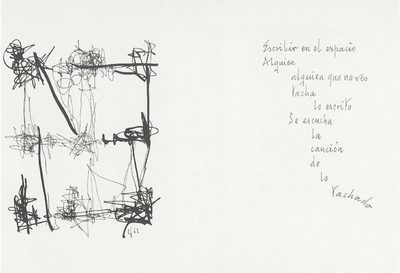 Escribir en el espacio
Alguien
alguien que no veo
tacha
lo escrito
Se escucha
la
canción
de
lo
tachado